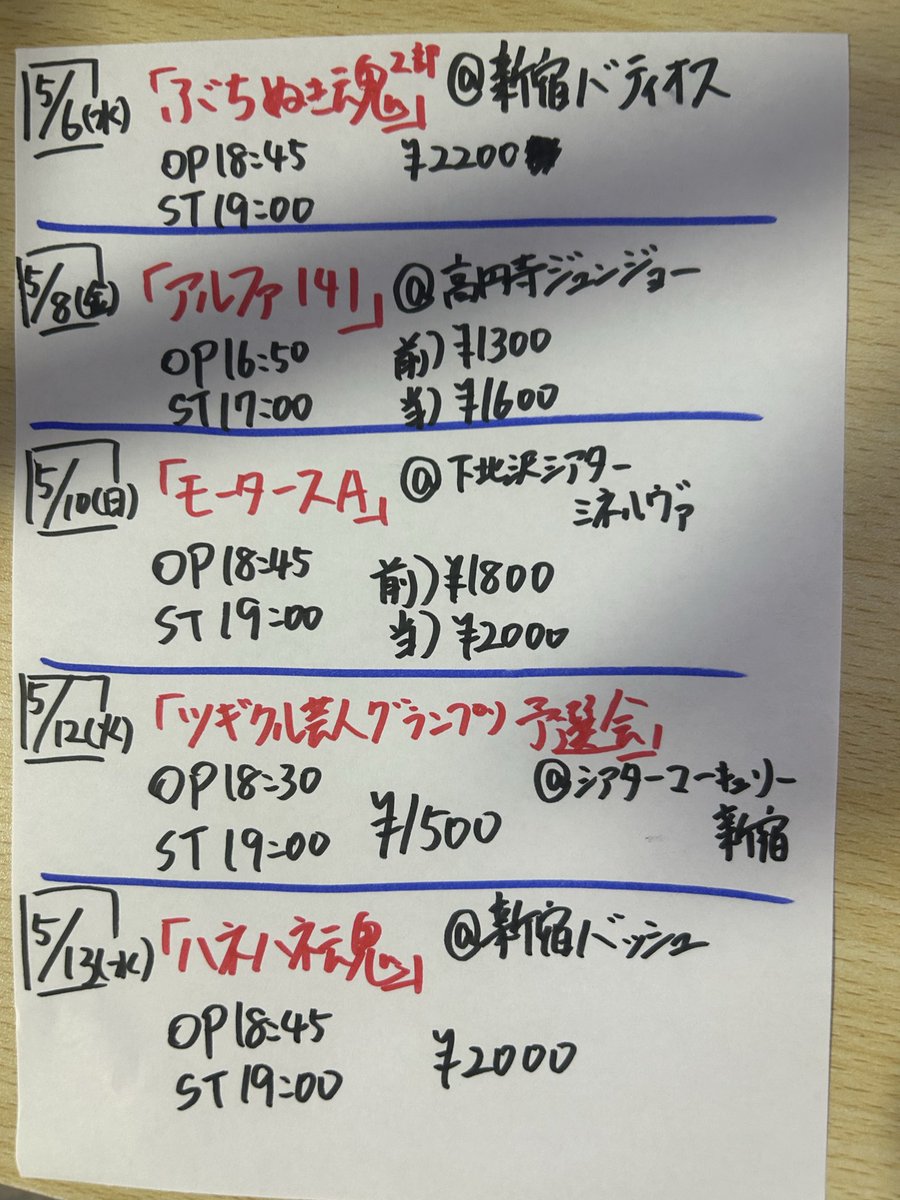 5/6(水) 「ぶちぬき魂2部」 @新宿バティオス
OP18:45 ¥2200
ST19:00
5/8(金) 「アルファ141」 @高円寺ジュンジョー
OP16:50 前)¥1300
ST17:00 当)¥1600
5/10(日) 「モータースA」 @下北沢シアター
ミネルヴァ
OP18:45 前)¥1800
ST19:00 当)¥2000
5/12(火) 「ツギクル芸人グランプリ予選会」
OP18:30 @シアターマーキュリー
ST19:00 ¥1500 新宿
5/13(水) 「ハネハネ魂」 @新宿バッシュ
OP18:45
ST19:00 ¥2000